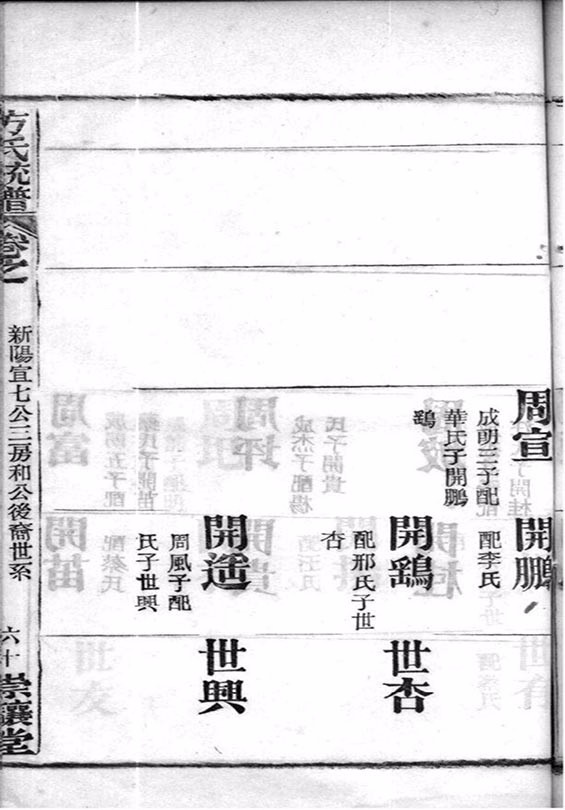 周宣
成朝三子配
華氏子開鵬
鷂
開鵬
配李氏
開鷂
配邢氏子世
杏
世杏
開遥
周風子配
氏子世興
世興
方氏統譜
卷之
新陽宣七公三房和公後裔世系
六十
崇讓堂